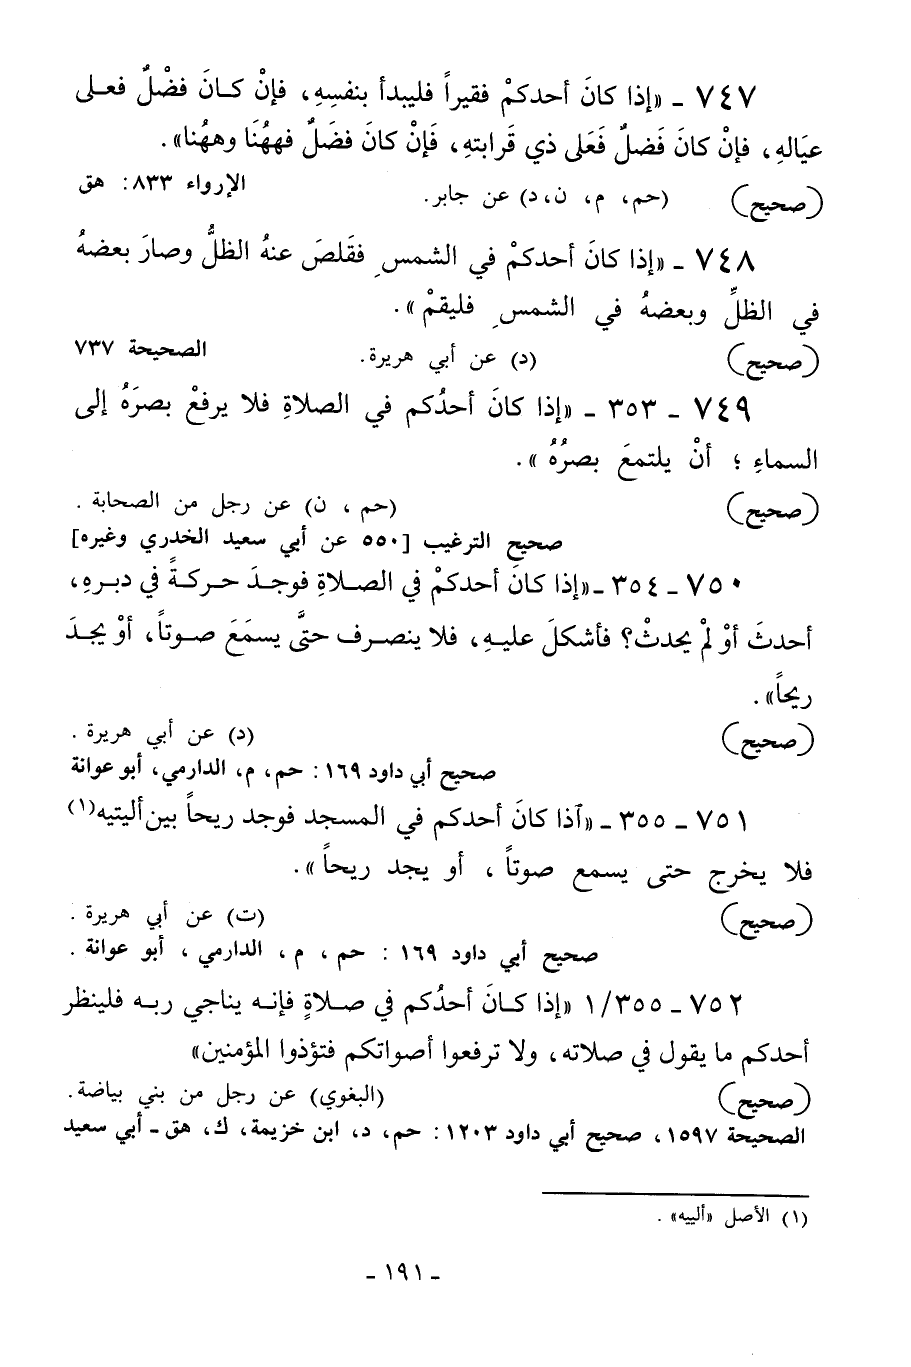 ٧٤٧ ـ «إذا كانَ أحدكمْ فقيراً فليبدأ بنفسِهِ، فإنْ كـانَ فضْلٌ فعـلى
عيَالهِ، فإنْ كانَ فَضلٌ فَعَلى ذي قَرابتهِ، فَإنْ كانَ فضَلٌ فههُنَا وههُنا».
(صحيح) (حم، م، ن، د) عن جابر. الإرواء ٨٣٣: هق
٧٤٨ ـ «إذا كانَ أحدكمْ في الشمسِ فقَلصَ عنهُ الظلُّ وصارَ بعضهُ
في الظلِّ وبعضهُ في الشمسِ فليقمْ».
(صحيح) (د) عن أبي هريرة. الصحيحة ٧٣٧
٧٤٩ ـ ٣٥٣ ـ «إذا كانَ أحدُكم في الصلاةِ فلا يرفعْ بصرَهُ إلى
السماءِ ؛ أنْ يلتمعَ بصرُهُ».
(صحيح) (حم ، ن) عن رجل من الصحابة .
صحيح الترغيب [٥٥٠ عن أبي سعيد الخدري وغيره]
٧٥٠ ـ ٣٥٤ ـ «إذا كانَ أحدكمْ في الصلاةِ فوجدَ حـركةً في دبـرهِ،
أحدثَ أوْ لمْ يحدثْ؟ فأشكلَ عليـهِ، فلا ينصـرف حتىَّ يسمَعَ صـوتاً، أوْ يجـدَ
ريحاً».
(صحيح) (د) عن أبي هريرة .
صحيح أبي داود ١٦٩: حم، م، الدارمي، أبو عوانة
٧٥١ ـ ٣٥٥ ـ «آذا كانَ أحدكم في المسجد فوجد ريحاً بين أليتيه(١)
فلا يخرج حتى يسمع صوتاً ، أو يجد ريحاً».
(صحيح) (ت) عن أبي هريرة .
صحيح أبي داود ١٦٩ : حم ، م ، الدارمي ، أبو عوانة .
٧٥٢ ـ ١/٣٥٥ «إذا كـانَ أحدُكم في صـلاةٍ فإنـه يناجي ربـه فلينظر
أحدكم ما يقول في صلاته، ولا ترفعوا أصواتكم فتؤذوا المؤمنين»
(صحيح) (البغوي) عن رجل من بني بياضة.
الصحيحة ١٥٩٧، صحيح أبي داود ١٢٠٣: حم، د، ابن خزيمة، ك، هق ـ أبي سعيد
(١) الأصل «ألييه» .
ـ ١٩١ ـ